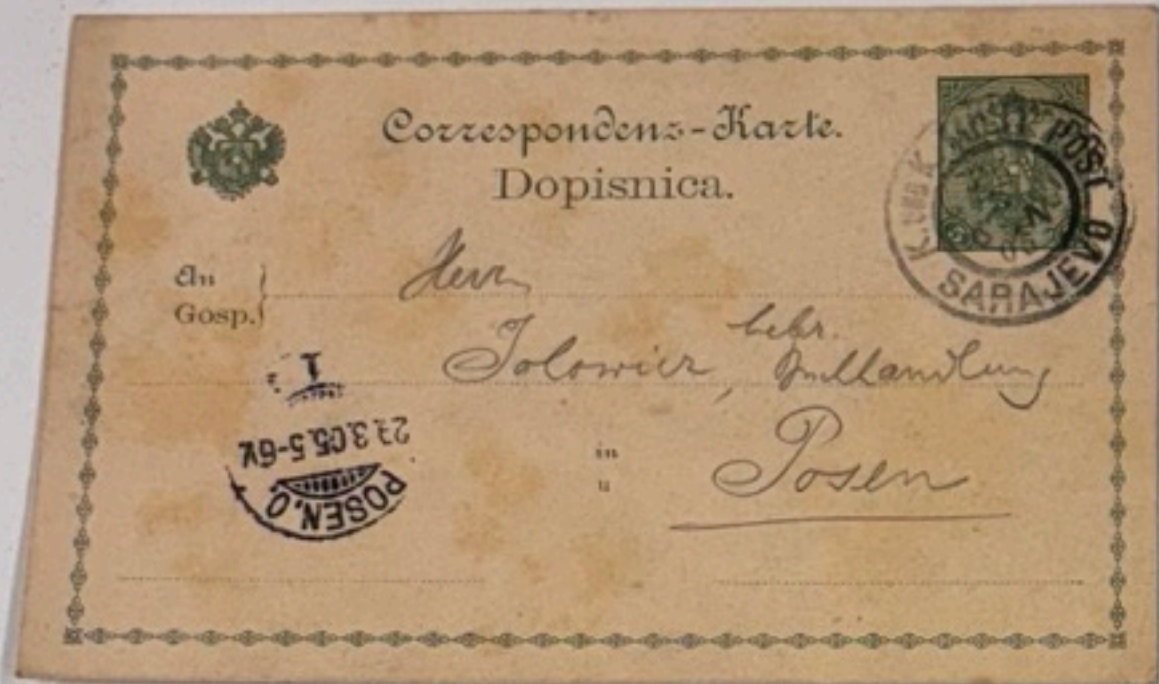 Correspondenz-Karte.
Dopisnica.
K. UND K. MILIT. POST
SARAJEVO
05
An
Gosp.
Herrn
Jolowicz, hebr.
Buchhandlung
in
u
Posen
1
POSEN.O
23.3.05.5-6V.